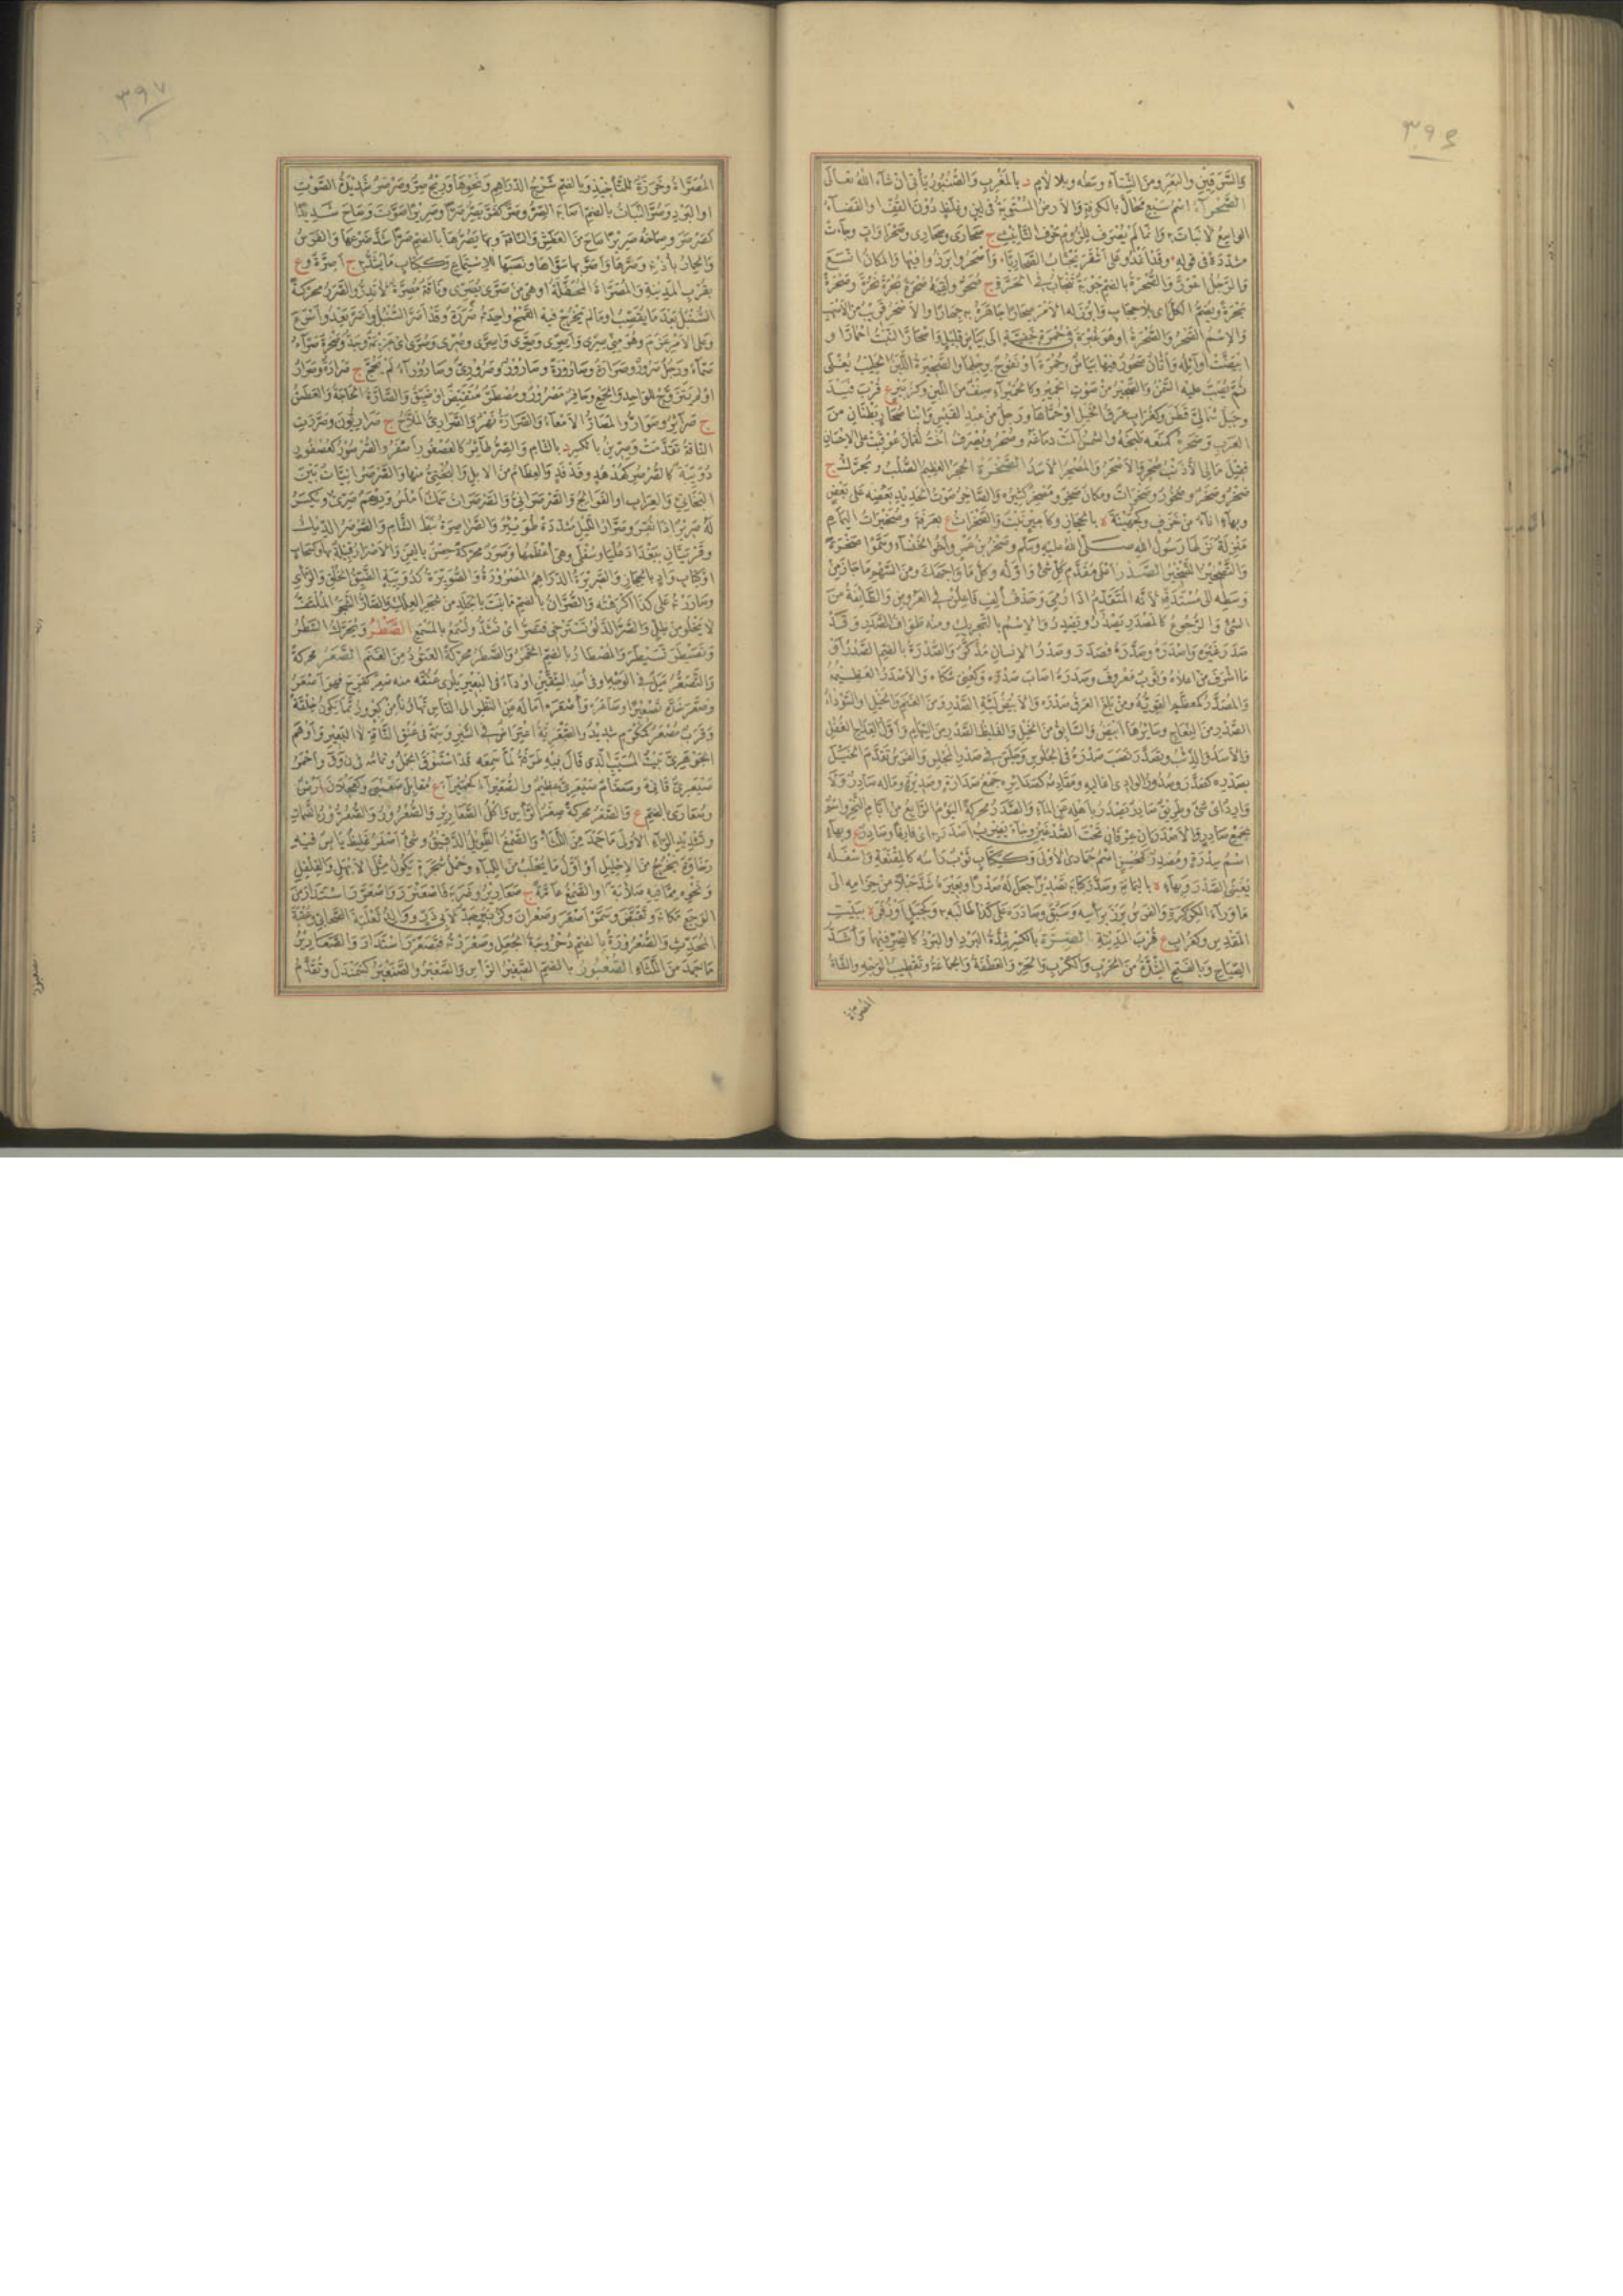 ٣٩٦
والسرقين والبعر ومن الشتاء وسطه وبلا لام د بالمغرب والصنبور يأتى ان شاء الله تعالى
الصحراء اسم سبع محال بالكوفة والارض المستوية فى لين وغلظ دون القف او الفضاء
الواسع لا نبات به وانما لم يصرف للزوم حرف التأنيث ج صحارى وصحارى وصحراوات وجاءت
مشددة فى قوله وقد اغدو على اشقر يجتاب الصحاريا واصحروا برزوا فيها والمكان اتسع
والرجل اعور والصحرة بالضم جوبة تنجاب فى الحرة ج صحر ولقيته صحرة بحرة نحرة وصحرة
بحرة ويضم الكل اى بلا حجاب وابرز له الامر صحارا جاهره به جهارا والاصحر قريب من الاصهب
والاسم الصحر والصحرة او هو غبرة فى حمرة خفية الى بياض قليل واصحار النبت احمار او
ابيضت اوائله واتان صحور فيها بياض وحمرة او نفوح برجلها والصحيرة اللبن الحليب يغلى
ثم يصب عليه السمن والصحير من صوت الحمير وكالحميراء صنف من اللبن وكزبير ع قرب فيد
وجبل شمالى قطن وكغراب عرق الخيل او حماها ورجل من عبد القيس وابنا صحار بطنان من
العرب وصحره كمنعه طبخه والشمس المت دماغه وصحر ويصرف اخت لقمان عوقبت على الاحسان
فقيل مالى الا ذنب صحر والاصحر والمصحر الاسد الصخرة الحجر العظيم الصلب ويحرك ج
صخر وصخر وصخور وصخرات ومكان صخر ومصخر كثيره والصاخر صوت الحديد بعضه على بعض
وبهاء اناء من خزف وكجهينة ة باليمامة وكأمير نبت والصخرات ع بعرفة وصخيرات اليمام
منزلة نزلها رسول الله صلى الله عليه وسلم وصخر بن عمرو اخو الخنساء وسموا صخرة
والتصخير التسخير الصدر اعلى مقدم كل شئ واوله وكل ما واجهك ومن السهم ما جاز من
وسطه الى مستدقه لانه المتقدم اذا رمى وحذف الف فاعلن فى العروض والطائفة من
الشئ والرجوع كالمصدر يصدر ويصدر والاسم بالتحريك ومنه طواف الصدر وقد
صدر غيره واصدره وصدره فصدر وصدر الانسان مذكر والصدرة بالضم الصدر او
ما اشرف من اعلاه وثوب معروف وصدره اصاب صدره وكعنى شكاه والاصدر العظيمه
والمصدر كمعظم القوية ومن بلغ العرق صدره والابيض لبة الصدر من الغنم والخيل او السوداء
الصدر من النعاج وسائرها ابيض والسابق من الخيل والغليظ الصدر من السهام واول القداح الغفل
والاسد والذئب وتصدر نصب صدره فى الجلوس وجلس فى صدر المجلس والفرس تقدم الخيل
بصدره كصدر وصدور الوادى اعاليه ومقادمه كصدائره جمع صدارة وصديرة وماله صادر ولا
وارد اى شئ وطريق صادر يصدر باهله عن الماء والصدر محركة اليوم الرابع من ايام النحر واسم
لجمع صادر والاصدران عرقان تحت الصدغين وجاء يضرب اصدريه اى فارغا وصادر ع وبهاء
اسم سدرة ومصدر كمحسن اسم جمادى الاولى وككتاب ثوب رأسه كالمقنعة واسفله
يغشى الصدر وبهاء ة باليمامة وصدر كتابه تصديرا جعل له صدرا وبعيره شد حبلا من حزامه الى
ما وراء الكركرة والفرس برز برأسه وسبق وصادره على كذا طالبه به وكجبل او زفر ة ببيت
المقدس وكغراب ع قرب المدينة الصرة بالكسر شدة البرد او البرد كالصر فيهما واشد
الصياح وبالفتح الشدة من الكرب والحرب والحر والعطفة والجماعة وتقطيب الوجه والشاة
المصراة
٣٩٧
المصراة وخرزة للتأخيذ وبالضم شرج الدراهم ونحوها وريح صر وصرصر شديدة الصوت
او البرد وصر النبات بالضم اصابه الصر وصر كفر يصر صرا وصريرا صوت وصاح شديدا
كصرصر وصماخه صريرا صاح من العطش والناقة وبها يصرها بالضم صرا شد ضرعها والفرس
والحمار باذنه وصرها واصر بها سواها ونصبها للاستماع وككتاب ما يشد به ج اصرة وع
بقرب المدينة والمصراة المحفلة او هى من صرى يصرى وناقة مصرة لا تدر والصرر محركة
السنبل بعد ما يقصب او ما لم يخرج فيه القمح واحدته صررة وقد اصر السنبل واصر يعدو اسرع
وعلى الامر عزم وهو منى صرى واصرى وصرى واصرى وصرى وصرى اى عزيمة وجد وصخرة صراء
صماء ورجل صرور وصرارة وصارورة وصارور وصرورى وصاروراء لم يحج ج صرارة وصرار
او لم يتزوج للواحد والجميع وحافر مصرور ومصطر متقبض او ضيق والصارة الحاجة والعطش
ج صرائر وصوار والمصار الامعاء والصرارة نهر والصرارى الملاح ج صراريون وصررت
الناقة تقدمت وصرين بالكسر د بالشام والصر طائر كالعصفور اصفر والصرصور كعصفور
دويبة كالصرصر كهدهد وفدفد والعظام من الابل والبختى منها والصرصرانيات بين
البخاتى والعراب او الفوالج والصرصرانى والصرصران سمك املس ودرهم صرى ويكسر
له صرير اذا نقر وصرار الليل مشددة طويئر والصراصرة نبط الشام والصرصر الديك
وقريتان ببغداد عليا وسفلى وهى اعظمها وصرر محركة حصن باليمن والاصرار قبيلة بها وكسحاب
او ككتاب واد بالحجاز والصريرة الدراهم المصرورة والصويرة كدويبة الضيق الخلق والرأى
وصاره على كذا اكرهه والصران بالضم ما نبت بالجلد من شجر العلك والصار الشجر الملتف
لا يخلو من ظل والصر الدلو تسترخى فتصر اى تشد وتسمع بالمسمع الصطر ويحرك السطر
وتصيطر تسيطر والمصطار بالضم الخمر والصطر محركة العتود من الغنم الصعر محركة
والتصعر ميل فى الوجه او فى احد الشقين او داء فى البعير يلوى عنقه منه صعر كفرح فهو اصعر
وصعر خده تصعيرا وصاعره واصعره اماله عن النظر الى الناس تهاونا من كبر وربما يكون خلقة
وقرب مصعر كمكرم شديد والصيعرية اعتراض فى السير وسمة فى عنق الناقة لا البعير واوهم
الجوهرى بيت المسيب الذى قال فيه طرفة لما سمعه قد استنوق الجمل وتمامه فى ن وق واحمر
صيعرى قانئ وسنام صيعرى عظيم والصعيراء كحميراء ع مقابل صعنبى وكعجلان ارض
وصعارى بالضم ع والصعر محركة صغر الرأس واكل الصعارير والصعرور والصعرر بالضمات
وتشديد الراء الاولى ما جمد من اللثاء والصمغ الطويل الدقيق وشئ اصفر غليظ يابس فيه
رخاوة يخرج من الاحليل او اول ما يحلب من اللباء وحمل شجرة يكون مثل الابهل والفلفل
ونحوه مما فيه صلابة او الصمغ عامة ج صعارير وضربه فاصعنرر واصعر استدار من
الوجع مكانه وتقبض وسموا اصعر وصعران وكزبير جد لابى ذر ووالد ثعلبة الصحابى وعقبة
المحدث والصعرورة بالضم دحروجة الجعل وصعررته فتصعرر استدار والصعارير
ما جمد من اللثاء الصعبور بالضم الصغير الرأس والصعبر والصنعبر كسمندل وتقدم